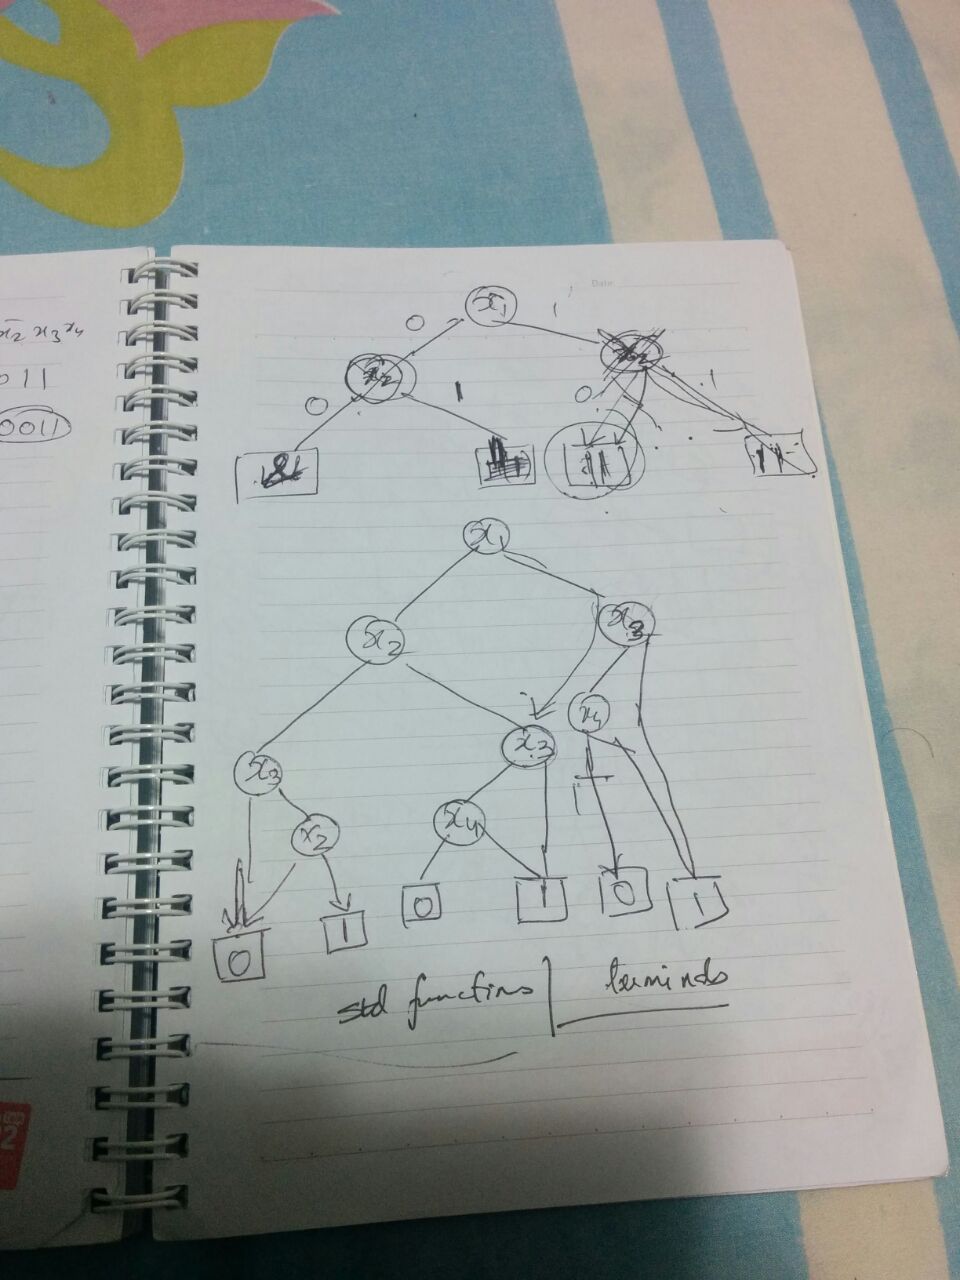 x̄2 x3 x4
011
0011
Date
x1
0 1
x2
0 1 0 1
x1
x2 x3
x3 x3 x4
x2 x4
0 1 0 1 0 1
std functions | terminds